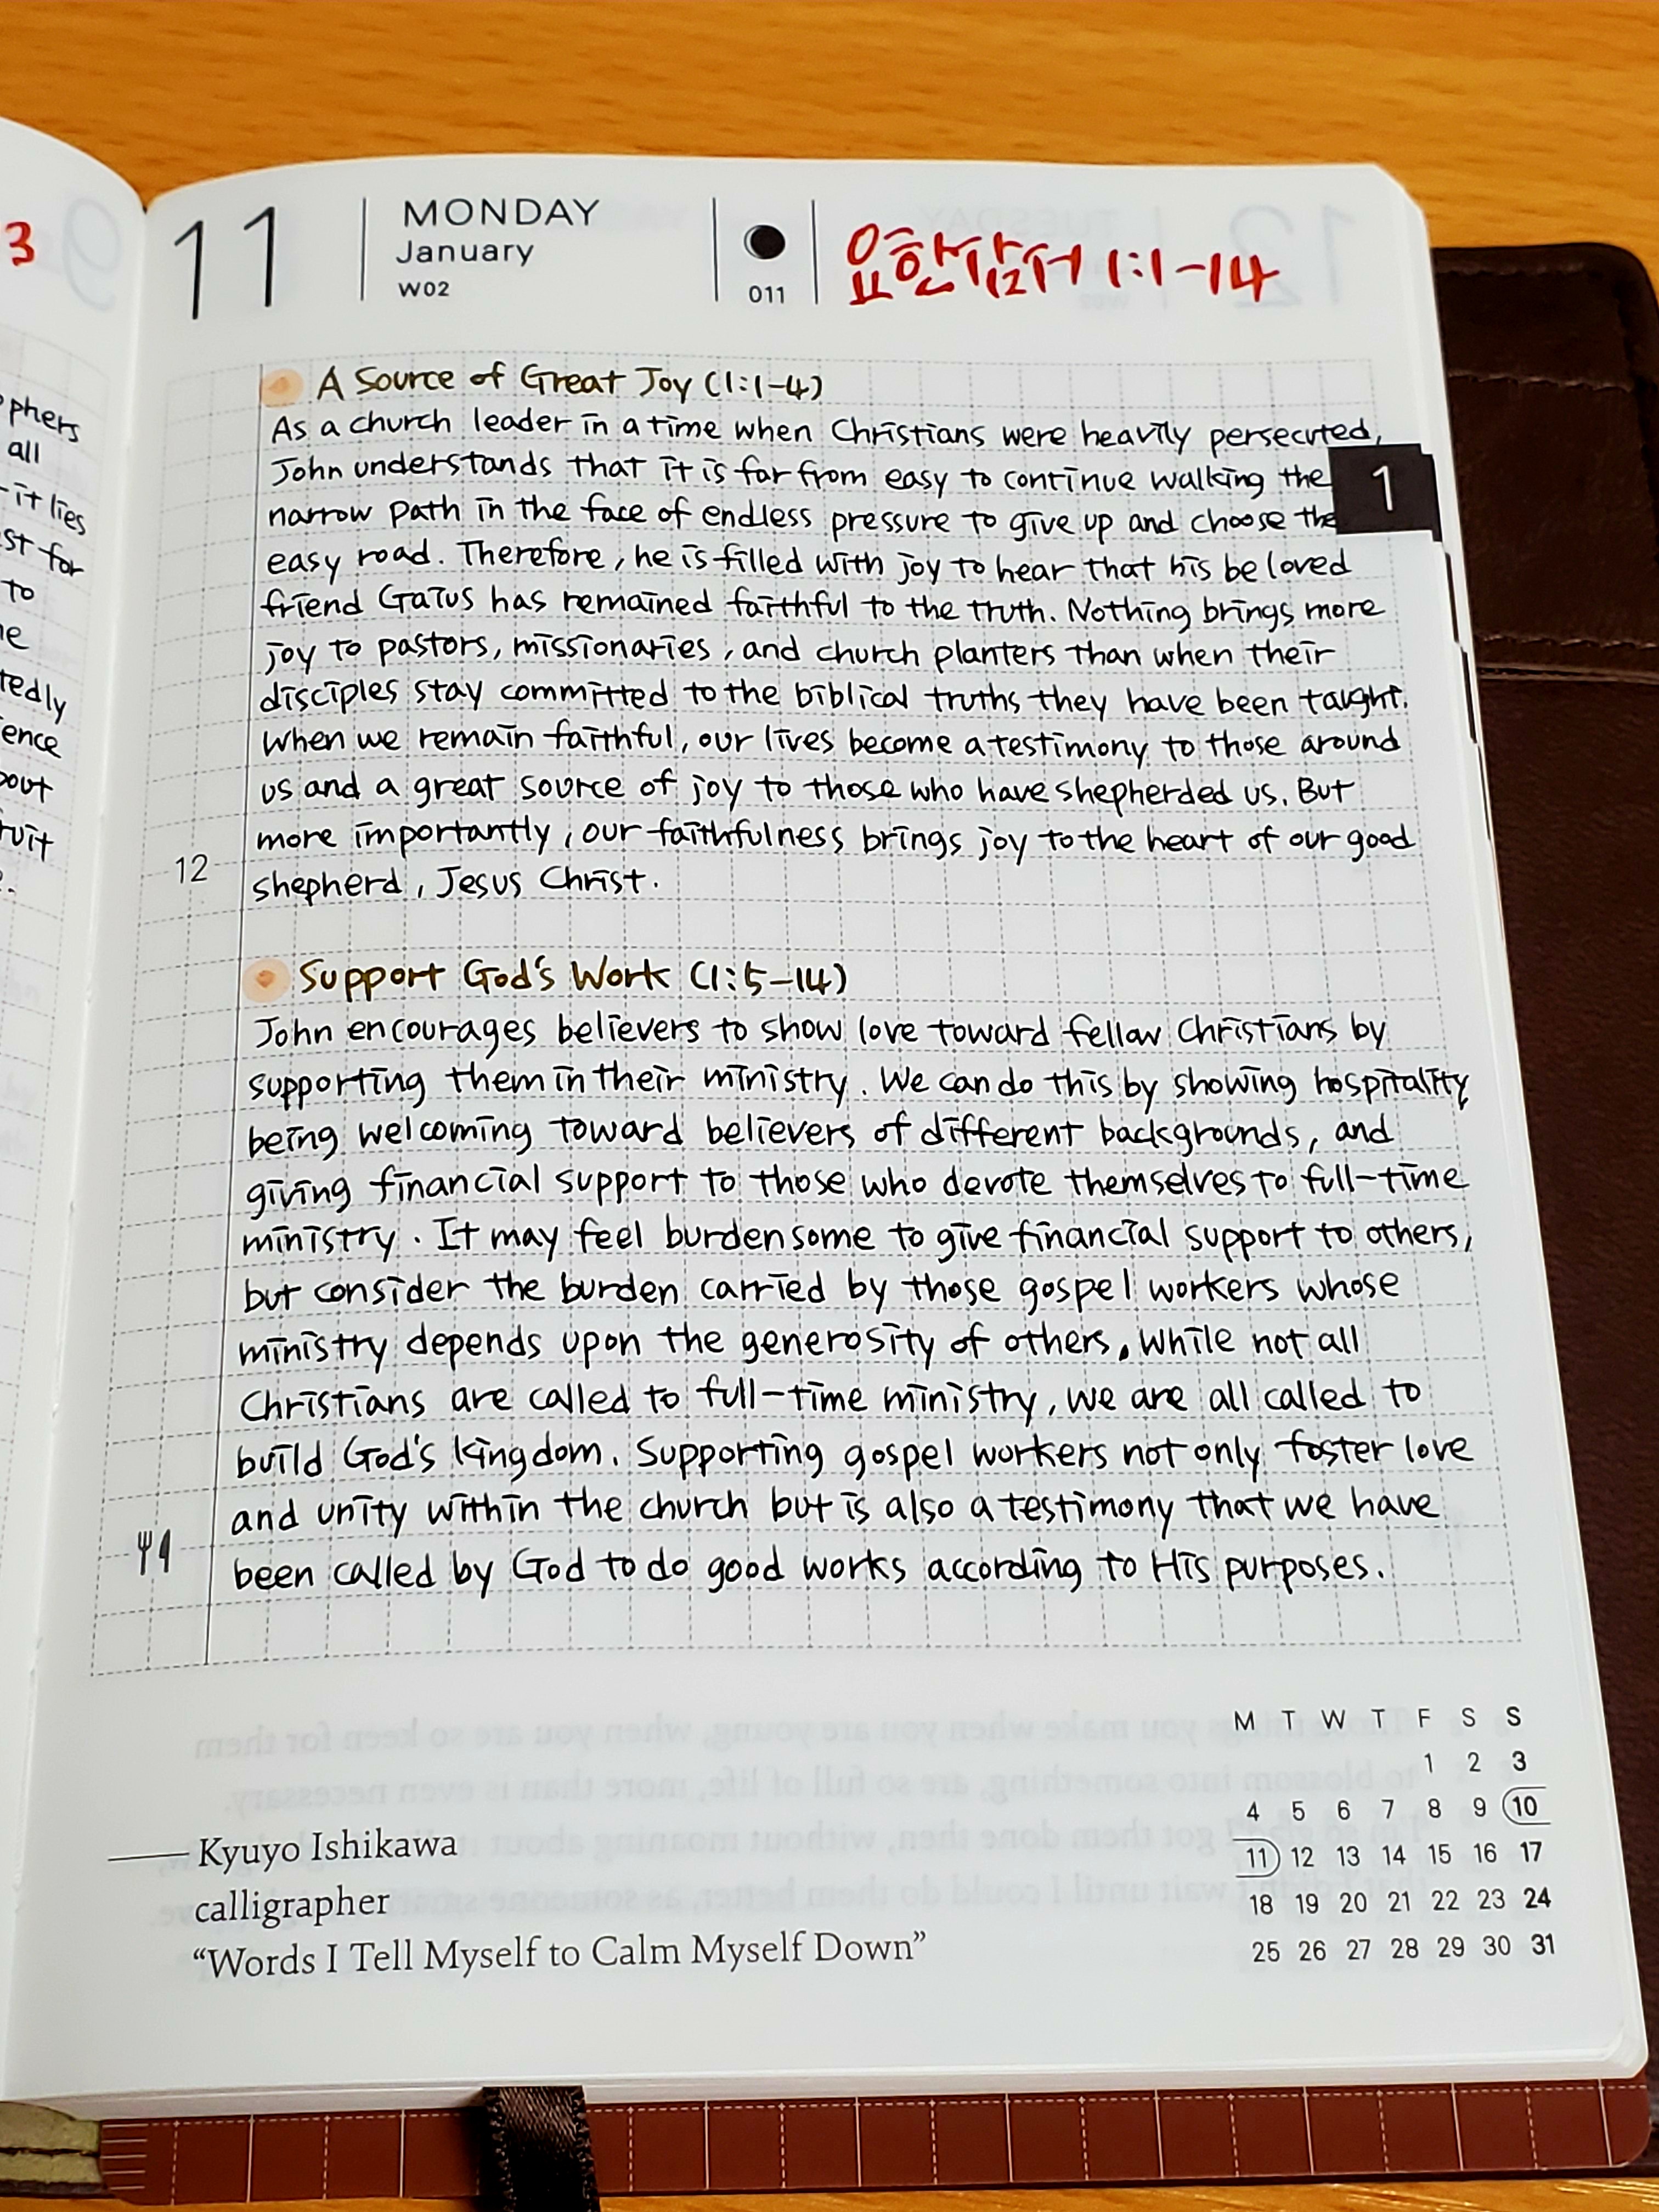 3
phers
all
it lies
st for
to
ne
tedly
ence
bout
ruit
11
MONDAY
January
W02
011
요한삼서 1:1-14
1
A Source of Great Joy (1:1-4)
As a church leader in a time when Christians were heavily persecuted,
John understands that it is far from easy to continue walking the
narrow path in the face of endless pressure to give up and choose the
easy road. Therefore, he is filled with joy to hear that his beloved
friend Gaius has remained faithful to the truth. Nothing brings more
joy to pastors, missionaries, and church planters than when their
disciples stay committed to the biblical truths they have been taught.
When we remain faithful, our lives become a testimony to those around
us and a great source of joy to those who have shepherded us. But
more importantly, our faithfulness brings joy to the heart of our good
12
shepherd, Jesus Christ.
Support God's Work (1:5-14)
John encourages believers to show love toward fellow Christians by
supporting them in their ministry. We can do this by showing hospitality,
being welcoming toward believers of different backgrounds, and
giving financial support to those who devote themselves to full-time
ministry. It may feel burdensome to give financial support to others,
but consider the burden carried by those gospel workers whose
ministry depends upon the generosity of others. While not all
Christians are called to full-time ministry, we are all called to
build God's kingdom. Supporting gospel workers not only foster love
and unity within the church but is also a testimony that we have
been called by God to do good works according to His purposes.
M T W T F S S
1 2 3
4 5 6 7 8 9 10
11 12 13 14 15 16 17
18 19 20 21 22 23 24
25 26 27 28 29 30 31
Kyuyo Ishikawa
calligrapher
“Words I Tell Myself to Calm Myself Down”